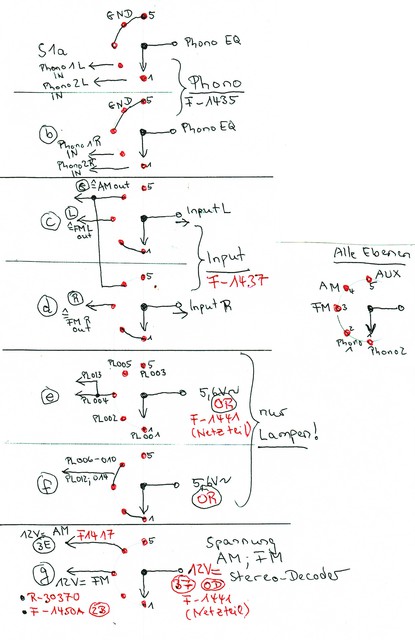 GND 5
S1a
Phono EQ
Phono 1 L
IN
Phono 2 L
IN
1
Phono
F-1435
GND 5
b
Phono EQ
Phono 1 R
IN
Phono 2 R
IN
1
≙ AM out
5
c
L
≙ FM L
out
Input L
1
Input
F-1437
5
d
R
≙
FM R
out
Input R
1
Alle Ebenen
AM 4
5
AUX
FM 3
2
Phono
1
1
Phono 2
PL005
5
PL003
PL013
e
PL004
5,6V~
OR
F-1441
(Netzteil)
PL002
PL001
nur
Lampen!
5
PL006-010
PL012,014
f
5,6V~
OR
1
12V= AM
3E
F1417
5
Spannung
AM; FM
Stereo-Decoder
g
12V= FM
12V=
OD
F-1441
(Netzteil)
R-30370
F-1450A 2B
1